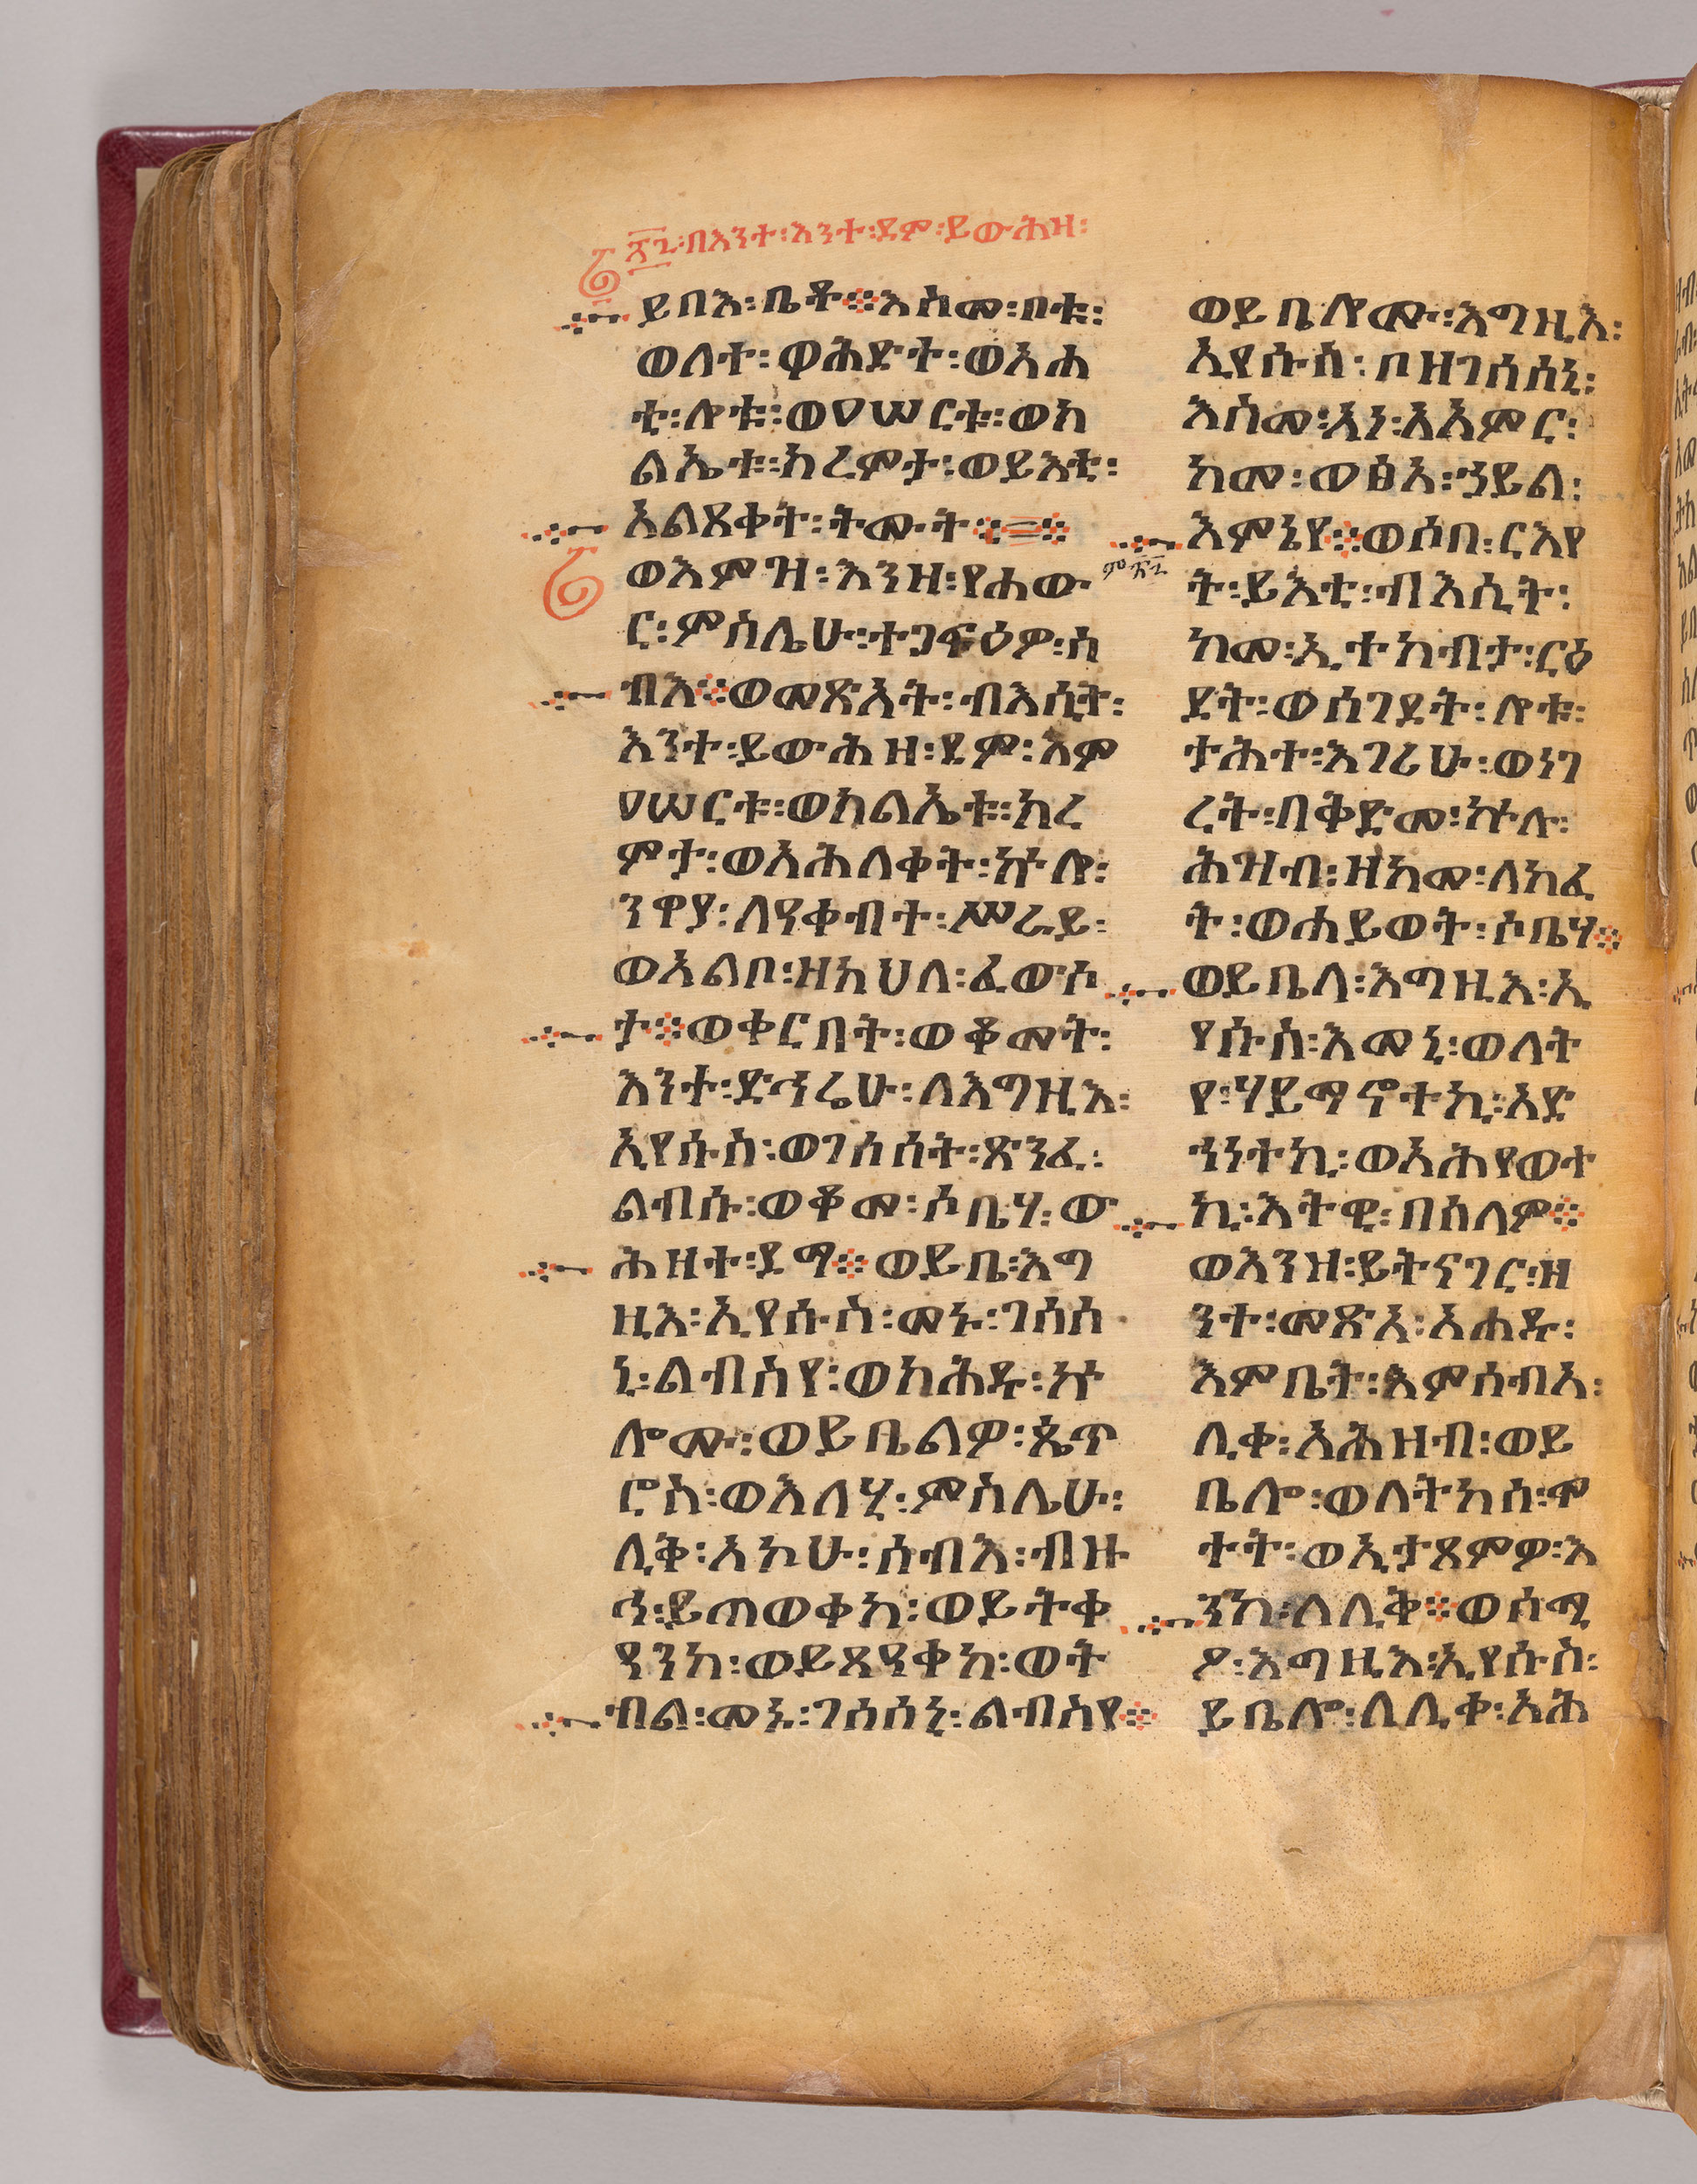 ፳፬፡በእንተ፡እንተ፡ደም፡ይውሕዝ፡
ይበእ፡ቤቶ፨እስመ፡ቦቱ፡
ወለተ፡ዋሕድት፡ወአሐ
ቲ፡ሎቱ፡ወ፲ሠርቱ፡ወክ
ልኤቱ፡ክረምታ፡ወይእቲ፡
አልጸቀት፡ትሙት፨
ወእምዝ፡እንዘ፡የሐው
ር፡ምስሌሁ፡ተጋፍዕዎ፡ሰ
ብእ፨ወመጽአት፡ብእሲት፡
እንተ፡ይውሕዘ፡ደም፡እም
፲ሠርቱ፡ወክልኤቱ፡ክረ
ምታ፡ወአሕለቀት፡ኵሎ፡
ንዋያ፡ለዓቀብተ፡ሥራይ፡
ወአልቦ፡ዘክህለ፡ፈውሶ
ታ፨ወቀርበት፡ወቆመት፡
እንተ፡ድኅሬሁ፡ለእግዚእ፡
ኢየሱስ፡ወገሰሰት፡ጽንፈ፡
ልብሱ፡ወቆመ፡ሶቤሃ፡ው
ሕዘተ፡ደማ፨ወይቤ፡እግ
ዚእ፡ኢየሱስ፡መኑ፡ገሰሰ
ኒ፡ልብስየ፡ወክሕዱ፡ኵ
ሎሙ፡ወይቤልዎ፡ጴጥ
ሮስ፡ወእለሂ፡ምስሌሁ፡
ሊቅ፡አኮሁ፡ሰብእ፡ብዙ
ኅ፡ይጠወቀከ፡ወይትቀ
ዓንከ፡ወይጻዓቀከ፡ወት
ብል፡መኑ፡ገሰሰኒ፡ልብስየ፨
ወይቤሎሙ፡እግዚእ፡
ኢየሱስ፡ቦዘገሰሰኒ፡
እስመ፡አነ፡አአምር፡
ከመ፡ወፅአ፡ኃይል፡
እምኔየ፨ወሶበ፡ርእየ
ት፡ይእቲ፡ብእሲት፡
ከመ፡ኢተከብታ፡ርዕ
ደት፡ወሰገደት፡ሎቱ፡
ታሕተ፡እገሪሁ፡ወነገ
ረት፡በቅድመ፡ኵሉ፡
ሕዝብ፡ዘከመ፡ለከፈ
ት፡ወሐይወት፡ሶቤሃ፨
ወይቤላ፡እግዚእ፡ኢ
የሱስ፡እመኒ፡ወለት
የ፡ሃይማኖተኪ፡አድ
ኅነተኪ፡ወአሕየወተ
ኪ፡እትዊ፡በሰላም፨
ወእንዘ፡ይትናገር፡ዘ
ንተ፡መጽአ፡አሐዱ፡
እምቤት፡እምሰብአ፡
ሊቀ፡አሕዝብ፡ወይ
ቤሎ፡ወለትከሰ፡ሞ
ተት፡ወኢታጸምዎ፡እ
ንከ፡ለሊቅ፨ወሰሚ
ዖ፡እግዚእ፡ኢየሱስ፡
ይቤሎ፡ለሊቀ፡አሕ